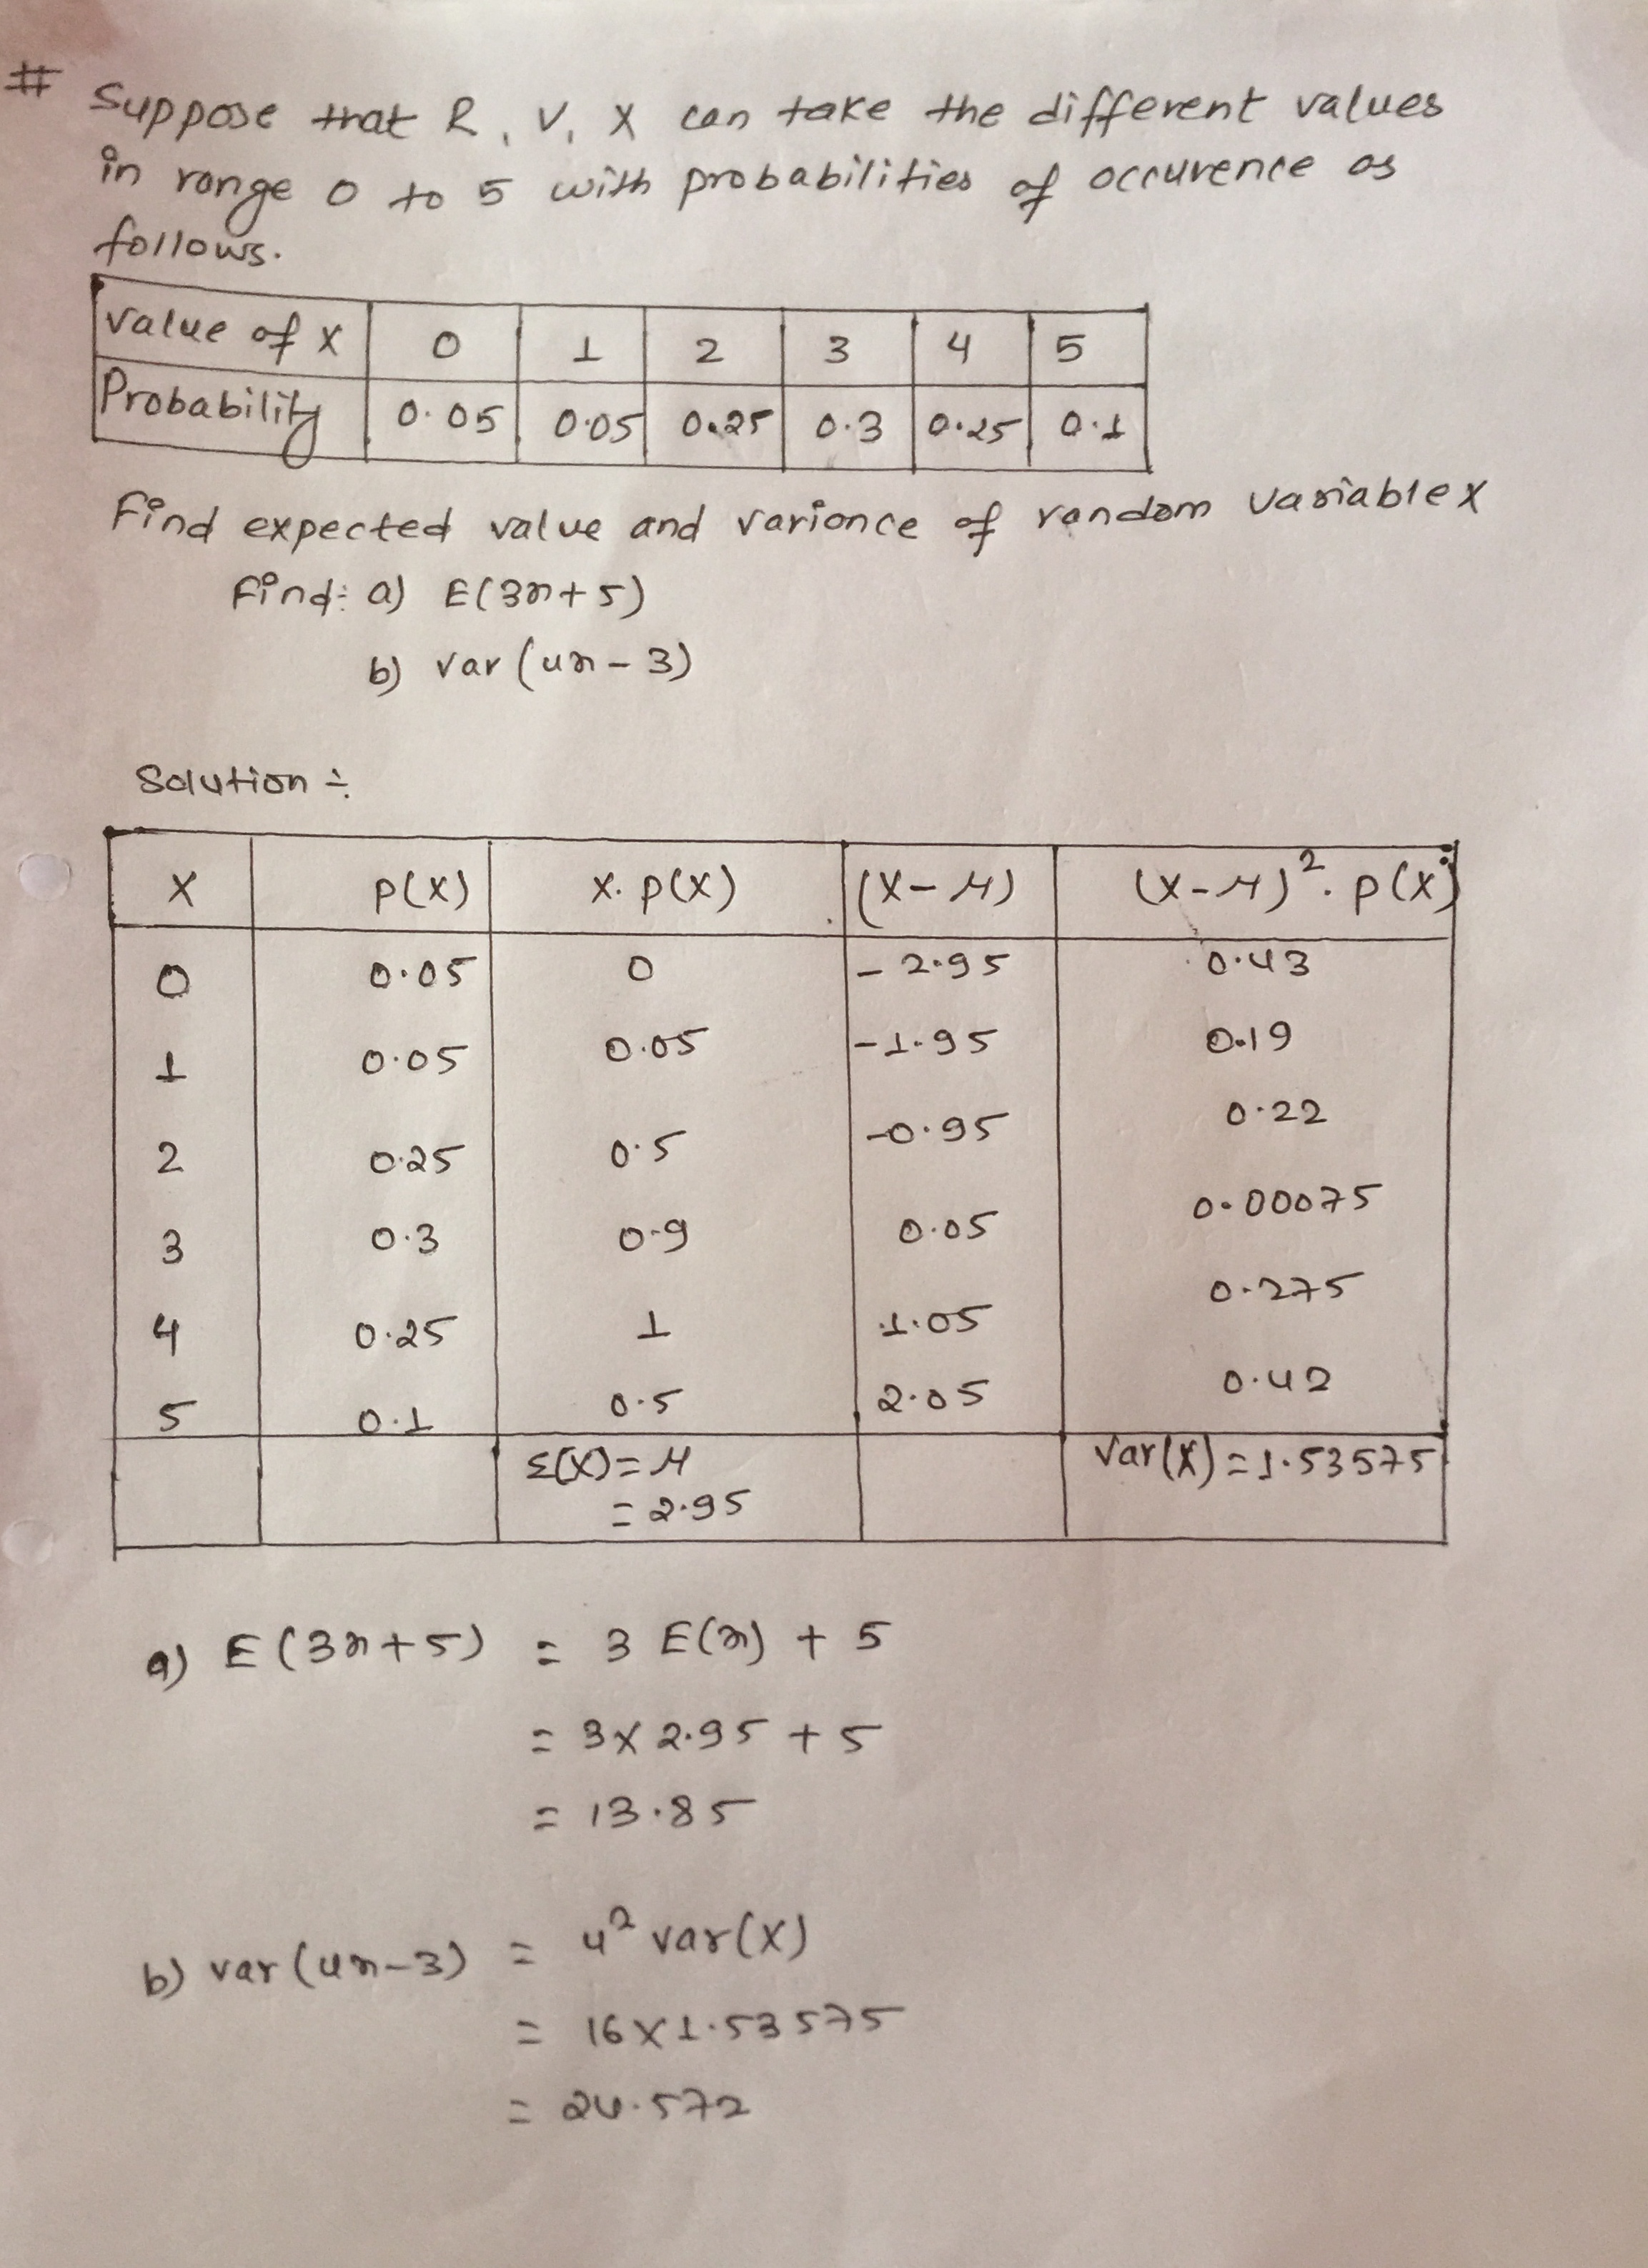 # Suppose that R.V. X can take the different values
in range 0 to 5 with probabilities of occurence as
follows.
Value of X 0 1 2 3 4 5
Probability 0.05 0.05 0.25 0.3 0.25 0.1
Find expected value and varionce of random variable X
Find: a) E(3x+5)
b) var(4x-3)
Solution ÷
X P(X) X.P(X) (X-μ) (X-μ)².P(X)
0 0.05 0 -2.95 0.43
1 0.05 0.05 -1.95 0.19
2 0.25 0.5 -0.95 0.22
3 0.3 0.9 0.05 0.00075
4 0.25 1 1.05 0.275
5 0.1 0.5 2.05 0.42
Σ(X)=μ Var(X)=1.53575
=2.95
a) E(3x+5) = 3 E(x) + 5
= 3×2.95+5
= 13.85
b) var(4x-3) = 4² var(X)
= 16×1.53575
= 24.572